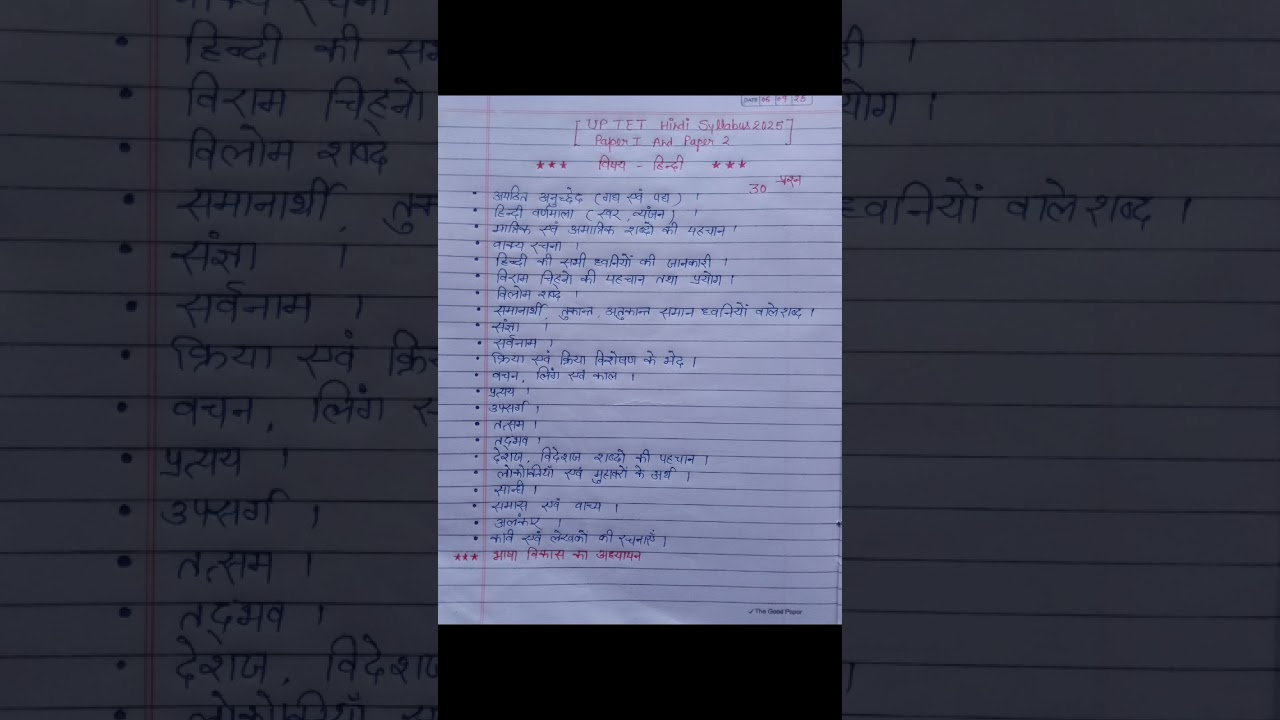 DATE 06 09 25
[ UPTET Hindi Syllabus 2025 ]
Paper I And Paper 2
*** विषय - हिन्दी ***
30 प्रश्न
• अपठित अनुच्छेद (गद्य एवं पद्य) ।
• हिन्दी वर्णमाला (स्वर, व्यंजन) ।
• मात्रिक एवं अमात्रिक शब्दो की पहचान ।
• वाक्य रचना ।
• हिन्दी की सभी ध्वनियों की जानकारी ।
• विराम चिह्नो की पहचान तथा प्रयोग ।
• विलोम शब्द ।
• समानार्थी, तुकान्त, अतुकान्त समान ध्वनियों वाले शब्द ।
• संज्ञा ।
• सर्वनाम ।
• क्रिया एवं क्रिया विशेषण के भेद ।
• वचन, लिंग एवं काल ।
• प्रत्यय ।
• उपसर्ग ।
• तत्सम ।
• तद्भव ।
• देशज, विदेशज शब्दो की पहचान ।
• लोकोक्तियाँ एवं मुहावरों के अर्थ ।
• सन्धी ।
• समास एवं वाच्य ।
• अलंकार ।
• कवि एवं लेखकों की रचनाएँ ।
*** भाषा विकास का अध्यापन
✓ The Good Paper